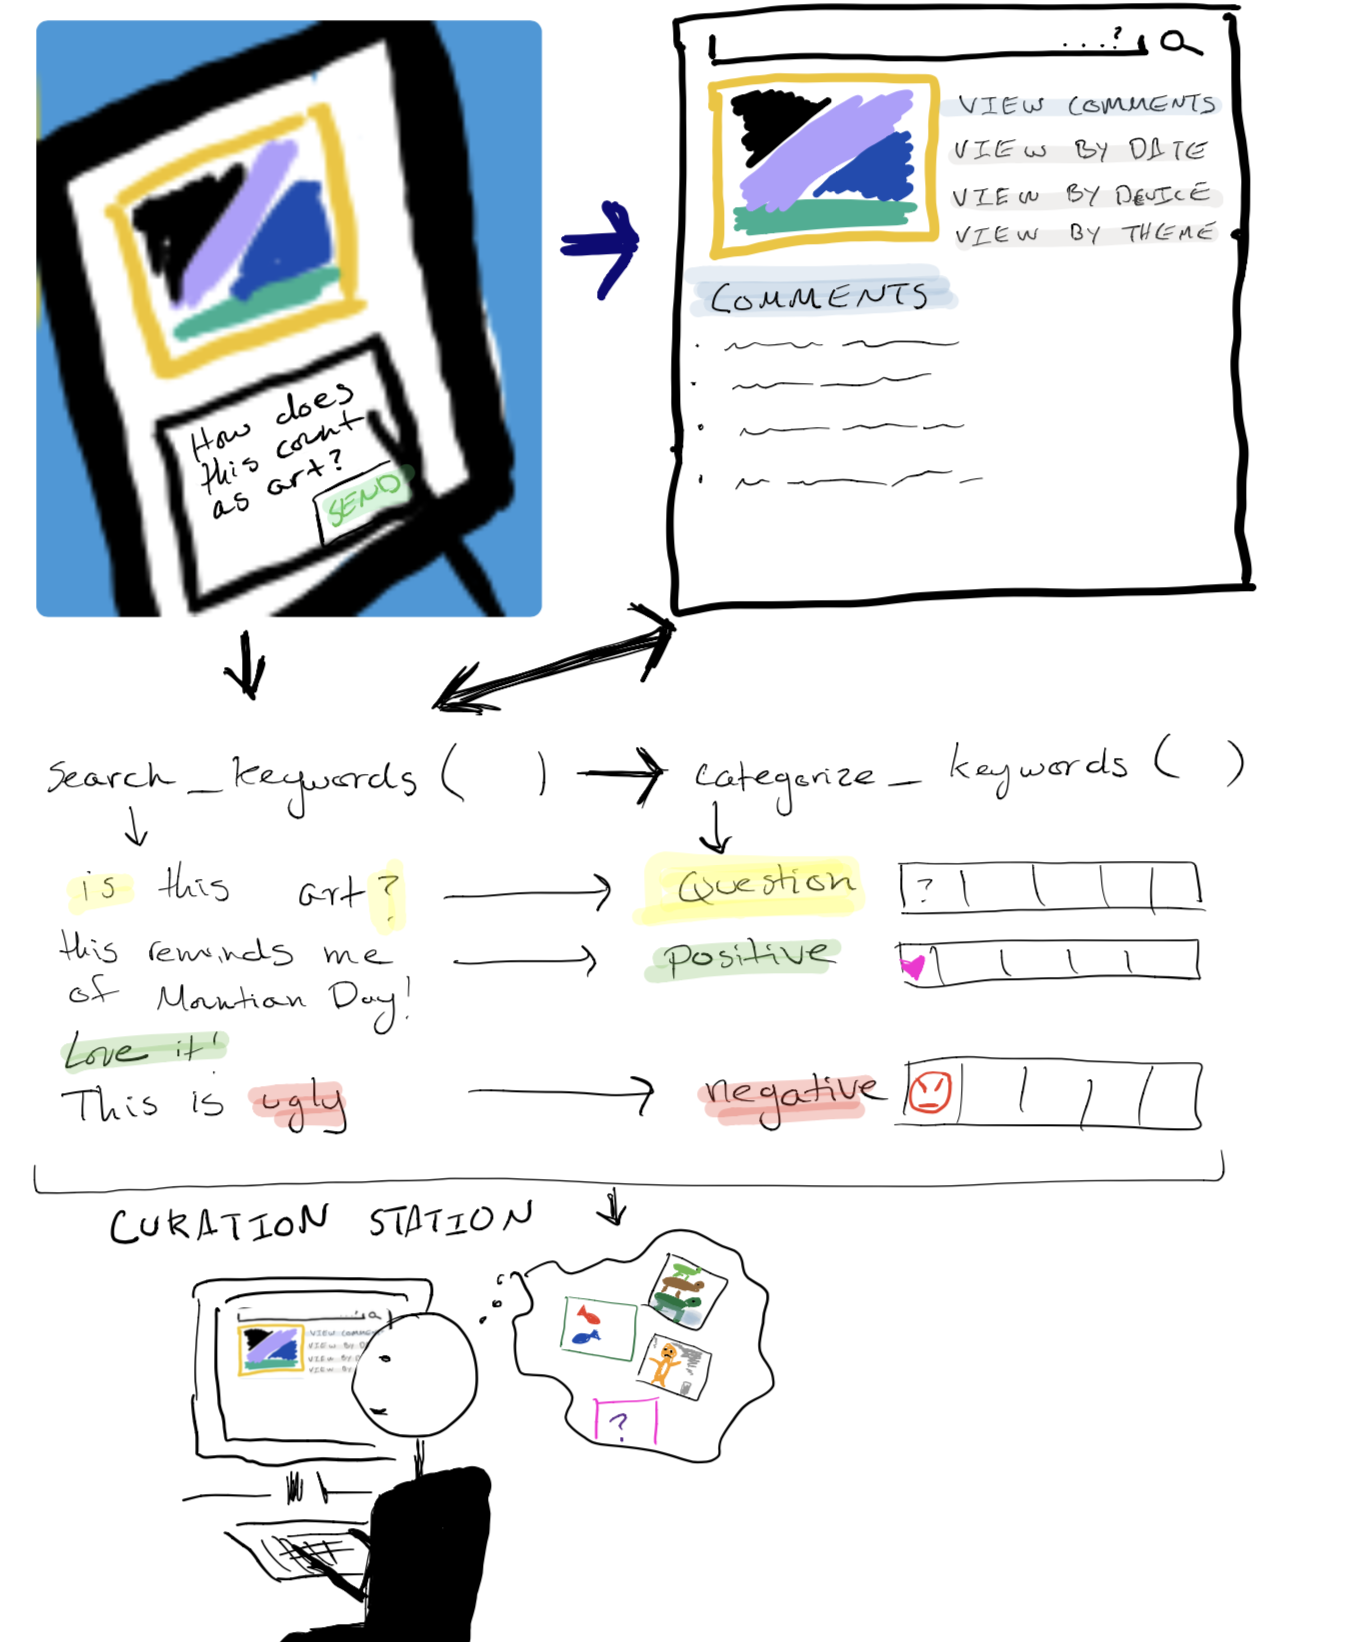 How does
this count
as art?
SEND
. . . . ?
VIEW COMMENTS
VIEW BY DATE
VIEW BY DEVICE
VIEW BY THEME
COMMENTS
search_keywords ( ) → categorize_keywords ( )
is this art? → Question ?
this reminds me → positive
of Mountian Day!
Love it!
This is ugly → negative
CURATION STATION
VIEW COMMEN
VIEW BY D
VIEW BY D
VIEW BY
?